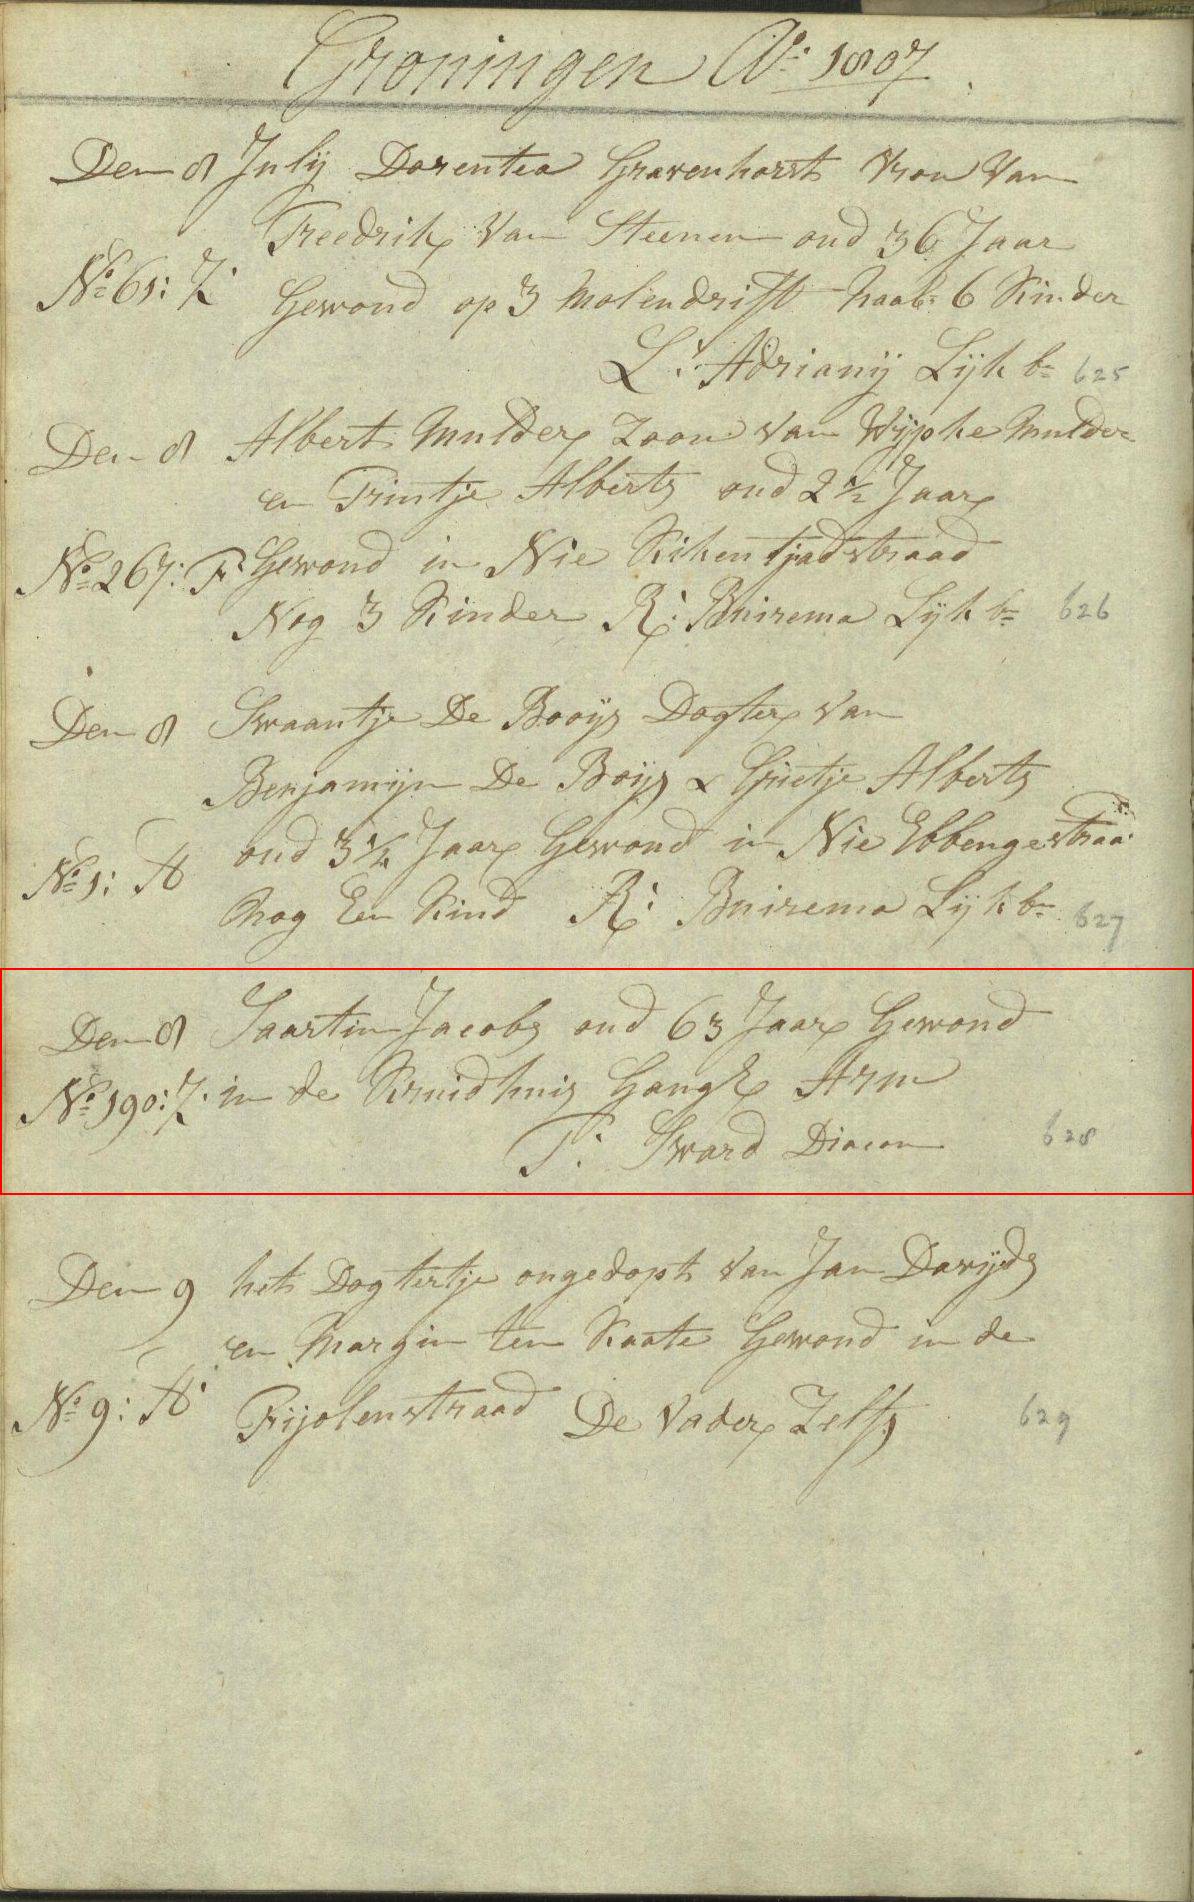 Groningen Ao: 1807
Den 8 July Dorentea Gravenhorst Vrou Van
Freedrik Van Steenen oud 36 Jaar
No 61: Z: Gewond op 3 Molendrift Naab: 6 Kinder
L: Adrianij Lijk br 625
Den 8 Albert Mulder Zoon van Wijpke Mulder
en Trintje Alberts oud 2 1/2 Jaar
No 267: F Gewond in Nie Kikentjadstraad
Nog 3 Kinder R: Buirema Lijk br 626
Den 8 Swaantje De Booijs Dogter van
Benjamijn De Boijs & Grietje Alberts
oud 3 1/4 Jaar Gewond in Nie Ebbengestraa:
No 1: A
Nog Een Kind R: Buirema Lijk br 627
Den 8 Saartin Jacobs oud 63 Jaar Gewond
No 190: Z: in de Kruidhuis Gang Arm
T: Sward Diacon 628
Den 9 het Dogtertje ongedopt van Jan Davijds
en Margin ten Kaate Gewond in de
No 9: A: Fijolenstraad De Vader Zelfs 629